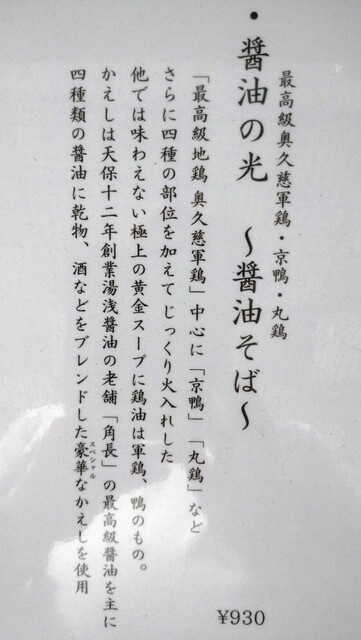 最高級奥久慈軍鶏・京鴨・丸鶏
・醤油の光　〜醤油そば〜
「最高級地鶏 奥久慈軍鶏」中心に「京鴨」「丸鶏」など
さらに四種の部位を加えてじっくり火入れした
他では味わえない極上の黄金スープに鶏油は軍鶏、鴨のもの。
かえしは天保十二年創業湯浅醤油の老舗「角長」の最高級醤油を主に
四種類の醤油に乾物、酒などをブレンドした豪華なかえしを使用
スペシャル
¥930